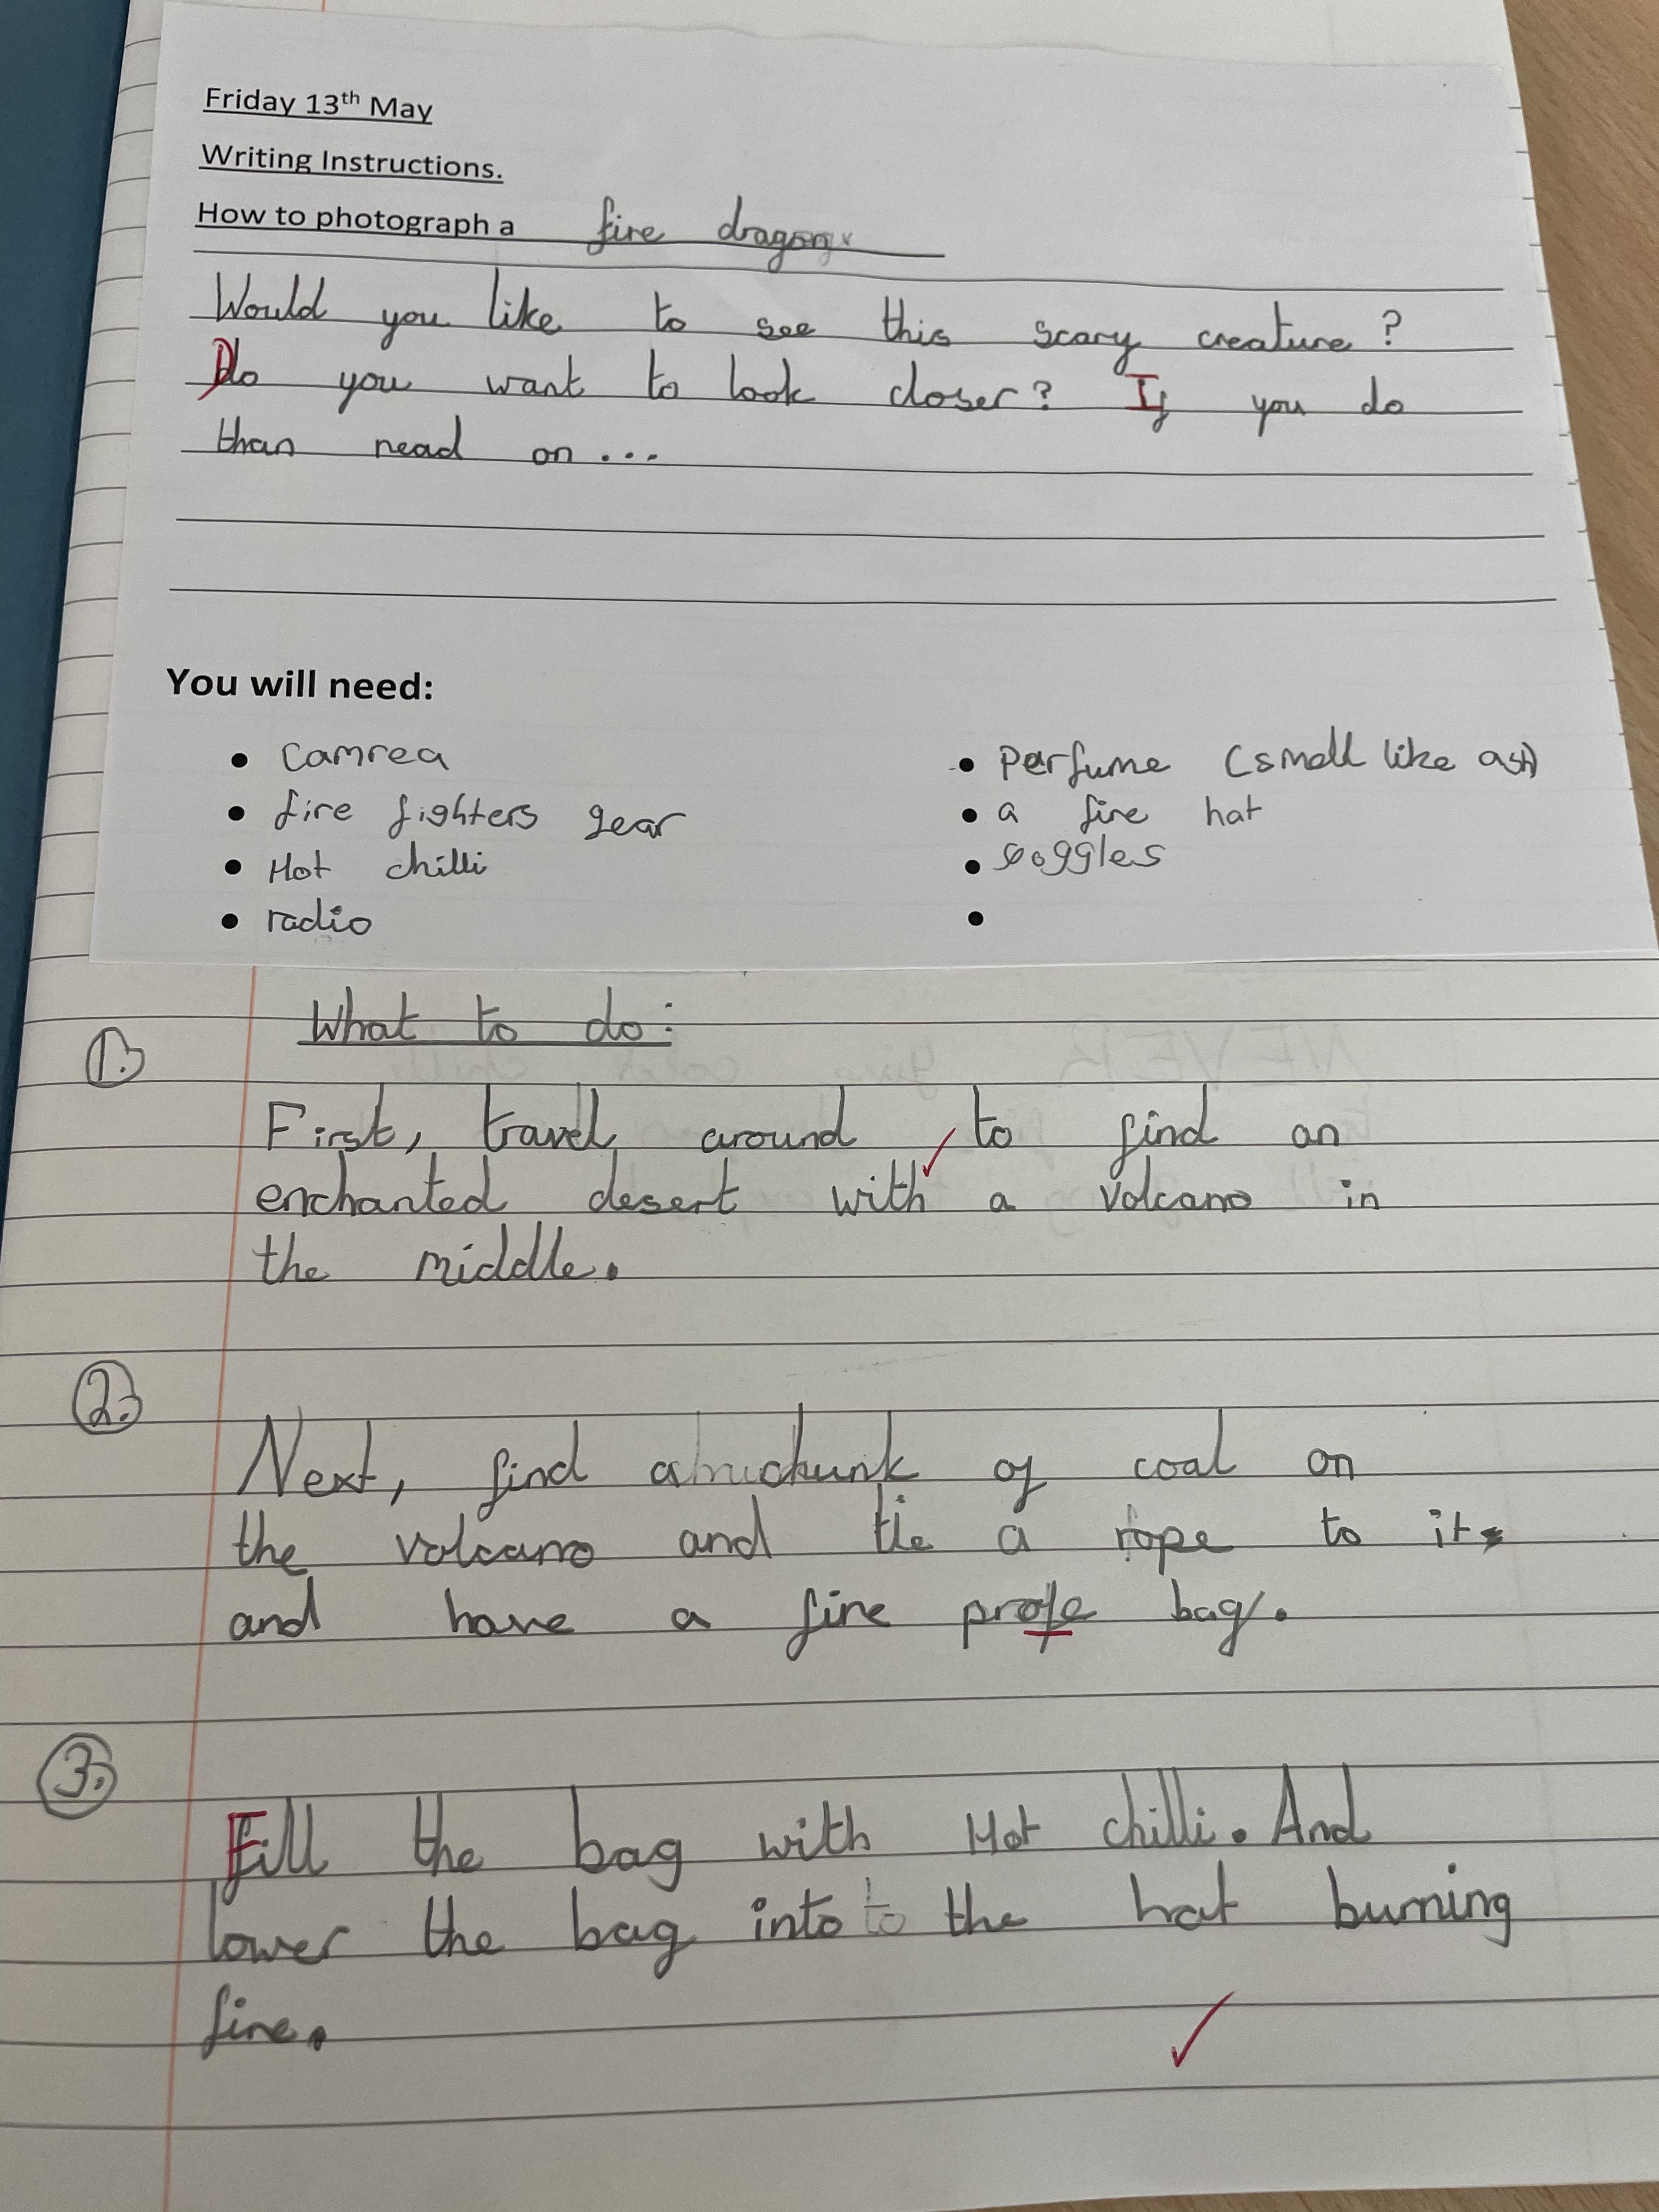 Friday 13th May
Writing Instructions.
How to photograph a fire dragon
Would you like to see this scary creature?
Do you want to look closer? If you do
than read on...
You will need:
• Camrea
• fire fighters gear
• Hot chilli
• radio
• Perfume (smell like ash)
• a fire hat
• goggles
•
What to do:
1.
First, travel around to find an
enchanted desert with a volcano in
the middle.
2.
Next, find a chunk of coal on
the volcano and tie a rope to it
and have a fire profe bag.
3.
Fill the bag with Hot chilli. And
lower the bag into the hot burning
fire.
NEVER give cold chilli